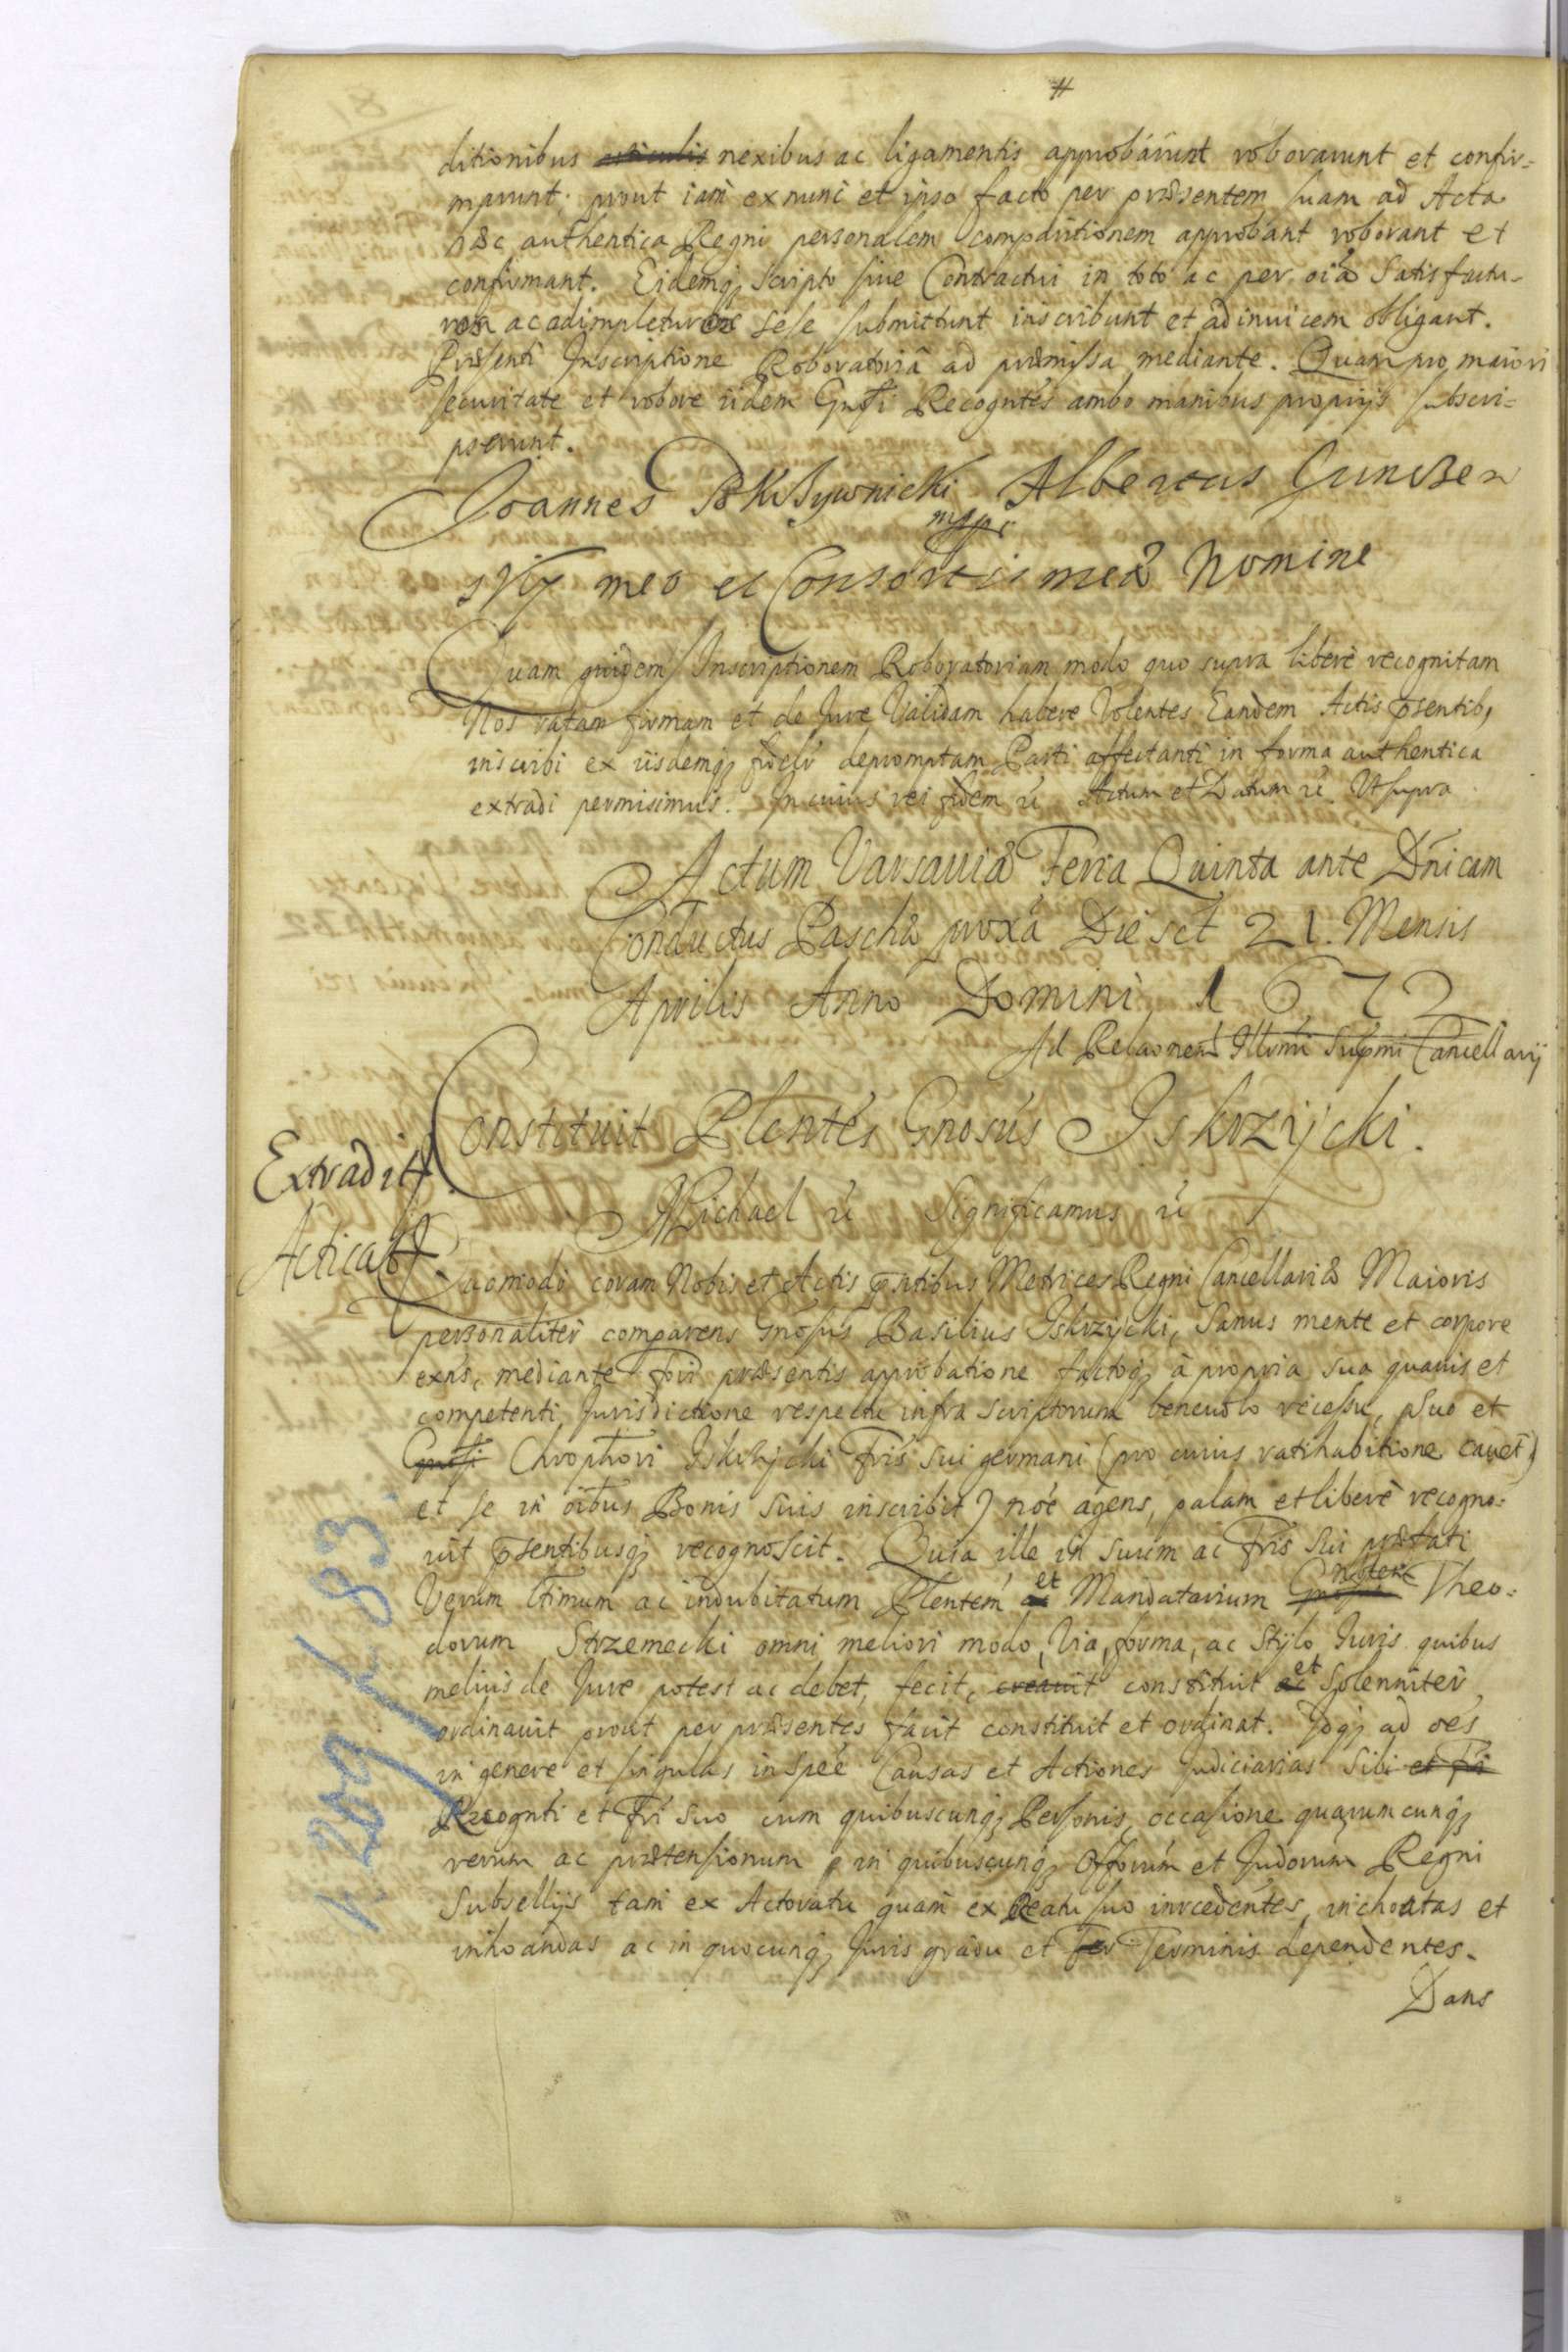 #
ditionibus articulis nexibus ac ligamentis approbârunt roborarunt et confir=
marunt; prout iam ex nunc et ipso facto per præsentem suam ad Acta
hæc authentica Regni personalem comparitionem approbant roborant et
confirmant. Eidemq; scripto siue Contractui in toto ac per oîa Satisfactu=
ros ac adimpleturos sese submittunt inscribunt et adinuicem obligant.
Præsenti Inscriptione Roboratoriâ ad præmissa mediante. Quam pro maiori
securitate et robore iidem Gnosi Recogntes ambo manibus proprijs subscri=
pserunt.
Joannes Albertus
mpp
meo et Consortis meæ Nomine
Quam quidem Inscriptionem Roboratoriam modo quo supra liberè recognitam
Nos ratam firmam et de Jure Validam habere Volentes Eandem Actis psentib,
inscribi ex iisdemq; fideli depromptam Parti affectanti in forma authentica
extradi permisimus. In cuius rei fidem rê Actum et Datum rê Ut supra
Actum Varsauiæ Feria Quinta ante Dnicam
Conductus Paschæ proxa Die sct 21. Mensis
Aprilis Anno Domini 1672
Ad Relaonem Illrmi Supmi Cancellarij
Constituit Plentes Gnosus Iskrzÿcki.
Extradit
Michael rê Significamus rê
Acticat
Quomodo coram Nobis et Actis pntibus Metrices Regni Cancellariæ Maioris
personaliter comparens Gnosus Basilius Iskrzÿcki, Sanus mente et corpore
exns, mediante fori præsentis approbatione factoq; à propria sua quauis et
competenti Jurisdictione respectu infra scriptorum beneuolo recessu, suo et
Gnosi Chrophori Iskrzÿcki Fris sui germani (pro cuius ratihabitione cauet)
et se in oibus Bonis suis inscribit) noe agens, palam et liberè recogno=
uit psentibusq; recognoscit. Quia ille in suum ac Fris sui præfati
Verum ltimum ac indubitatum Plentem ac et Mandatarium Gnosum Theo=
dorum Strzemecki omni meliori modo, Via, forma, ac Stÿlo Juris quibus
melius de Jure potest ac debet, fecit, creauit constituit ac et Solenniter
ordinauit prout per præsentes facit constituit et ordinat. Idq; ad oes
in genere et singulas in spee Causas et Actiones Judiciarias Sibi et Fri
Recognti et Fri suo cum quibuscunq; Personis, occasione quarumcunq;
rerum ac prætensionum in quibuscunq; Offorum et Judorum Regni
Subsellijs tam ex Actoratu quam ex Reatu suo incedentes, inchoatas et
inhoandas ac in quocunq; Juris gradu et Ter Terminis dependentes.
Dans